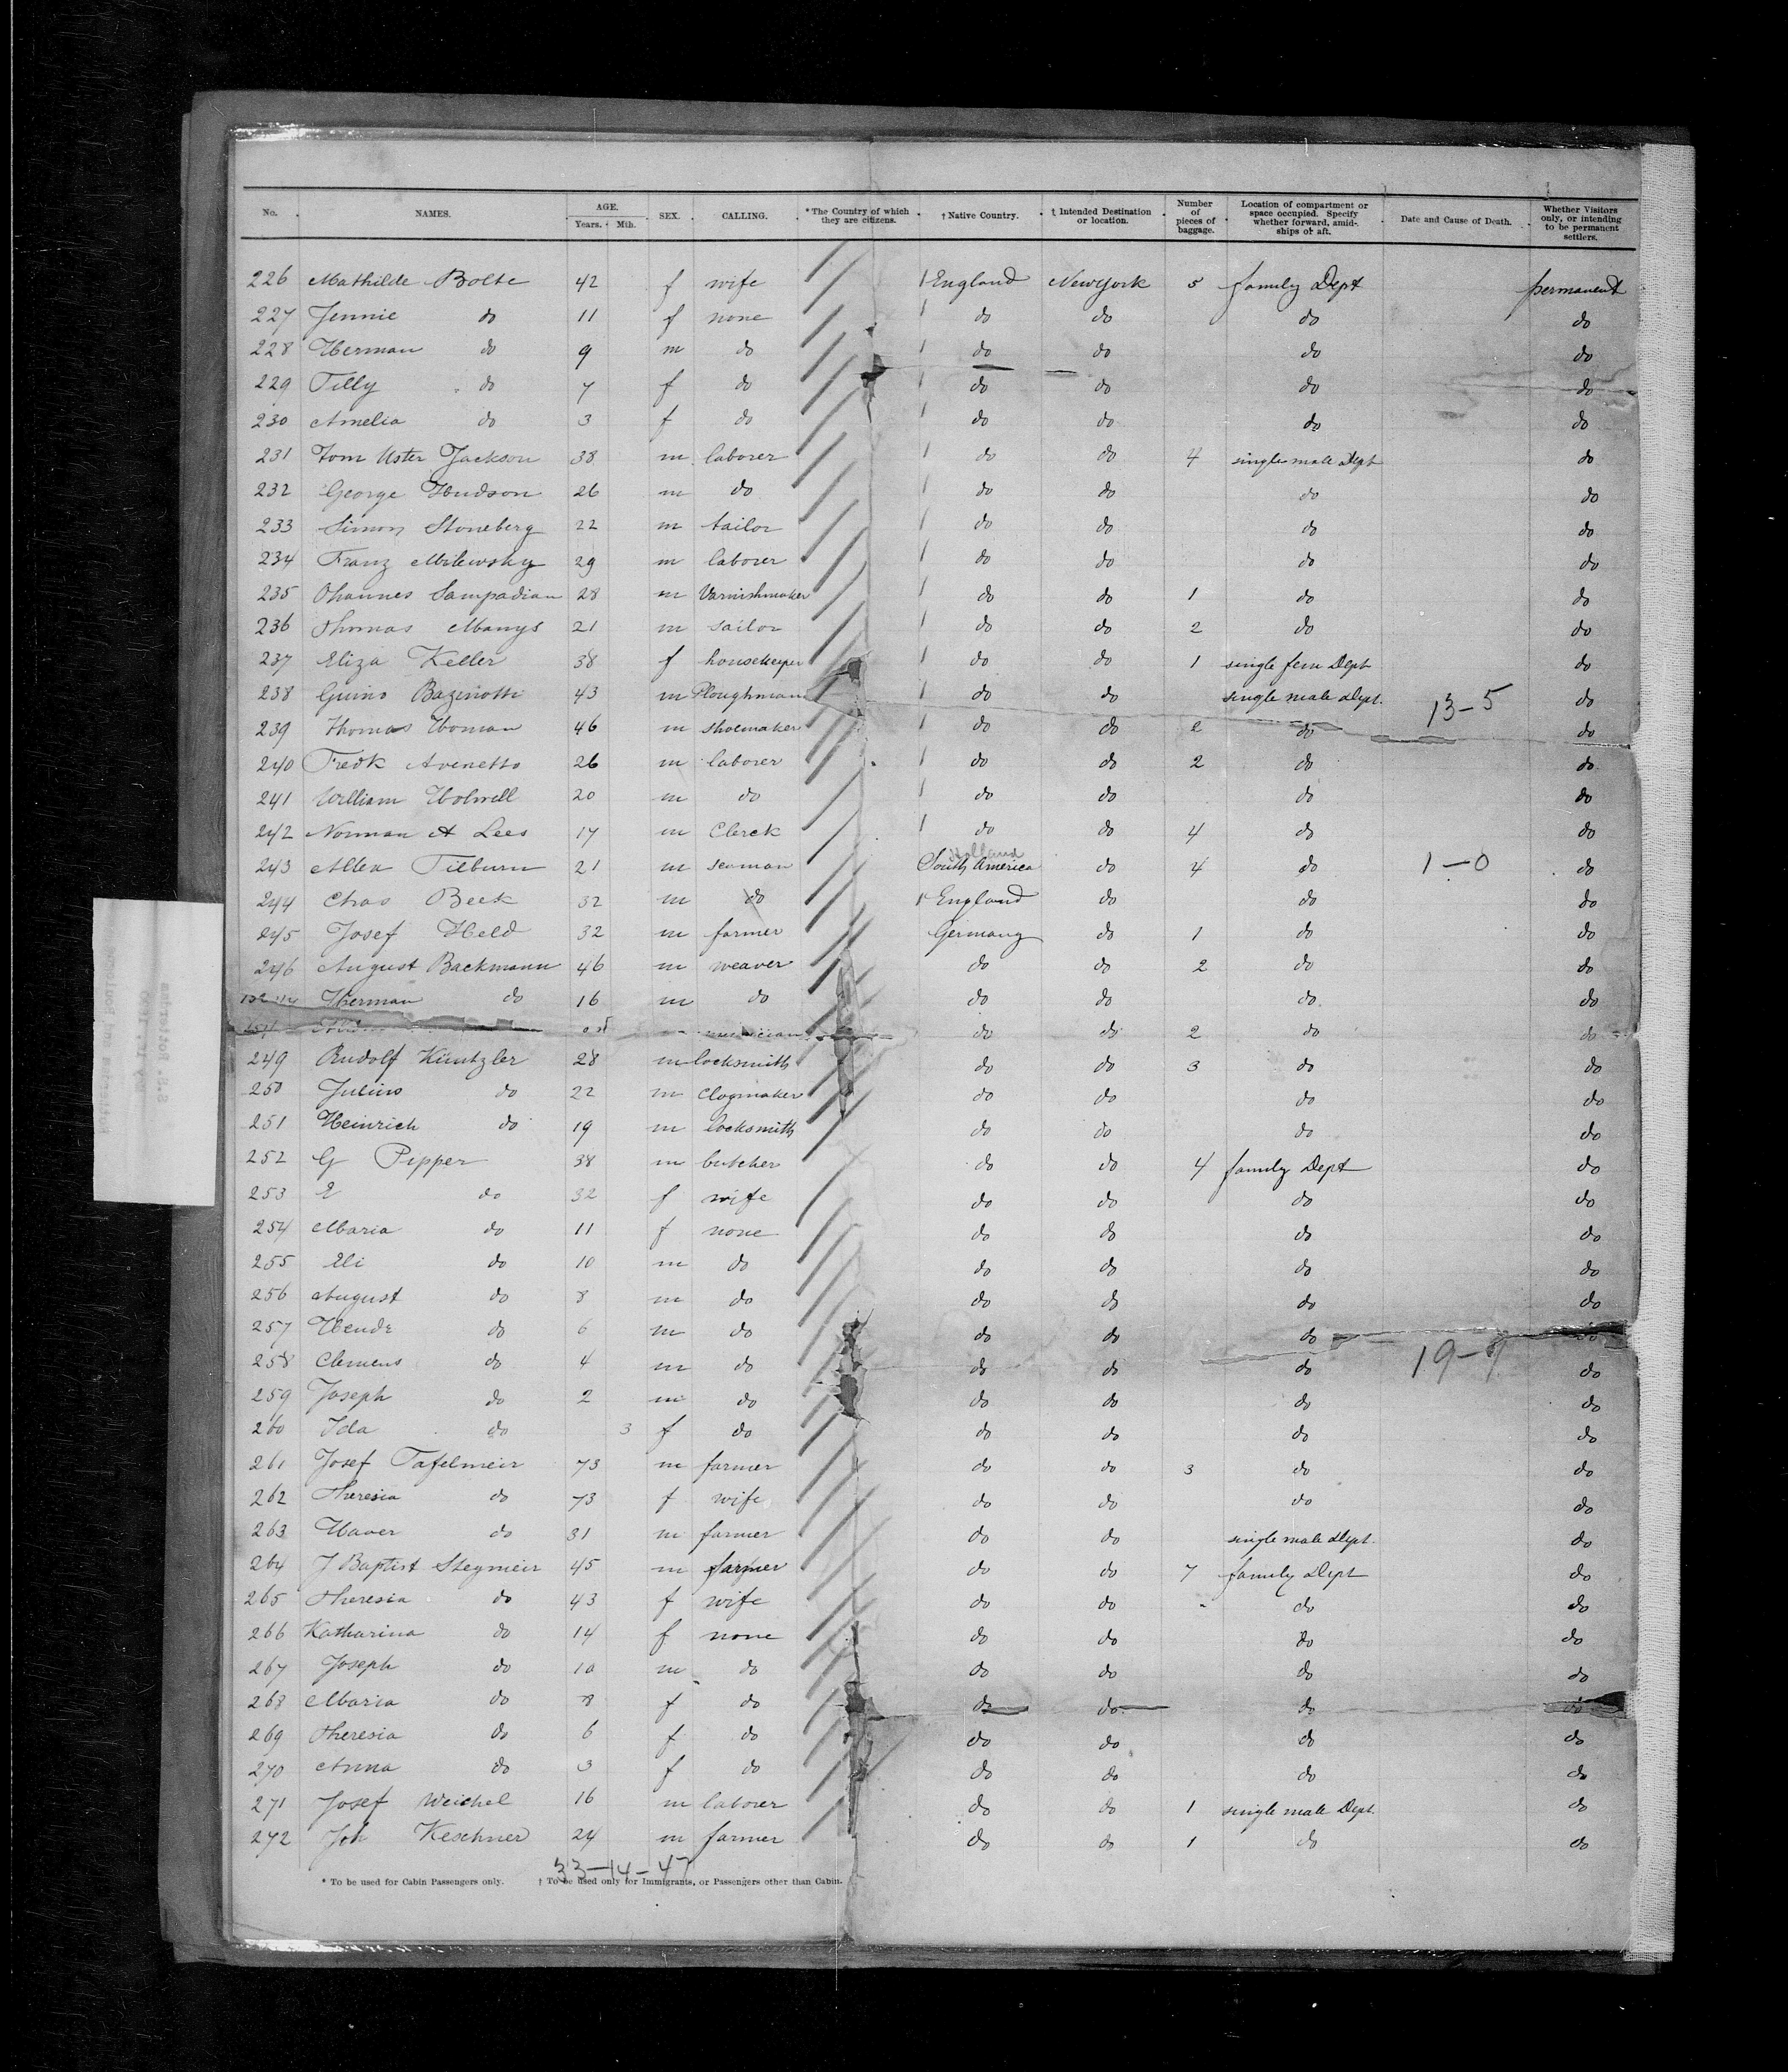 No. NAMES. AGE. Years. Mth. SEX. CALLING. * The Country of which they are citizens. † Native Country. † Intended Destination or location. Number of pieces of baggage. Location of compartment or space occupied. Specify whether forward, amidships or aft. Date and Cause of Death. Whether Visitors only, or intending to be permanent settlers.
226 Mathilde Bolte 42 f wife England New York 5 family Dept permanent
227 Jennie do 11 f none do do do do
228 Herman do 9 m do do do do do
229 Tilly do 7 f do do do do do
230 Amelia do 3 f do do do do do
231 Tom Uster Jackson 38 m laborer do do 4 single male Dept do
232 George Hudson 26 m do do do do do
233 Simon Stoneberg 22 m tailor do do do do
234 Franz Milewsky 29 m laborer do do do do
235 Ohannes Sampadian 28 m Varnishmaker do do 1 do do
236 Thomas Manys 21 m sailor do do 2 do do
237 Eliza Keller 38 f housekeeper do do 1 single fem Dept do
238 Guino 43 m Ploughman do do single male Dept. 13-5 do
239 Thomas Homan 46 m shoemaker do do 2 do do
240 Fredk Avenetto 26 m laborer do do 2 do do
241 William Holwell 20 m do do do do do
242 Norman A Lees 17 m Clerck do do 4 do do
243 Allen Tilburn 21 m seaman Holland South America do 4 do 1-0 do
244 Chas Beek 32 m do England do do do
245 Josef Held 32 m farmer Germany do 1 do do
246 August Backmann 46 m weaver do do 2 do do
Herman do 16 m do do do do do
musician do do 2 do do
249 Rudolf Küntzler 28 m locksmith do do 3 do do
250 Julius do 22 m clogmaker do do do do
251 Heinrich do 19 m locksmith do do do do
252 G Pipper 38 m butcher do do 4 family Dept do
253 E do 32 f wife do do do do
254 Maria do 11 f none do do do do
255 Eli do 10 m do do do do do
256 August do 8 m do do do do do
257 do 6 m do do do do do
258 Clemens do 4 m do do do do 19-9 do
259 Joseph do 2 m do do do do do
260 Ida do 3 f do do do do do
261 Josef Tafelmeir 73 m farmer do do 3 do do
262 Theresia do 73 f wife do do do do
263 Xaver do 31 m farmer do do single male Dept. do
264 J Baptist Stegmeir 45 m farmer do do 7 family Dept do
265 Theresia do 43 f wife do do do do
266 Katharina do 14 f none do do do do
267 Joseph do 10 m do do do do do
268 Maria do 8 f do do do do do
269 Theresia do 6 f do do do do do
270 Anna do 3 f do do do do do
271 Josef Weichel 16 m laborer do do 1 single male Dept. do
272 Joh Keschner 24 m farmer do do 1 do do
33-14-47
* To be used for Cabin Passengers only. † To be used only for Immigrants, or Passengers other than Cabin.